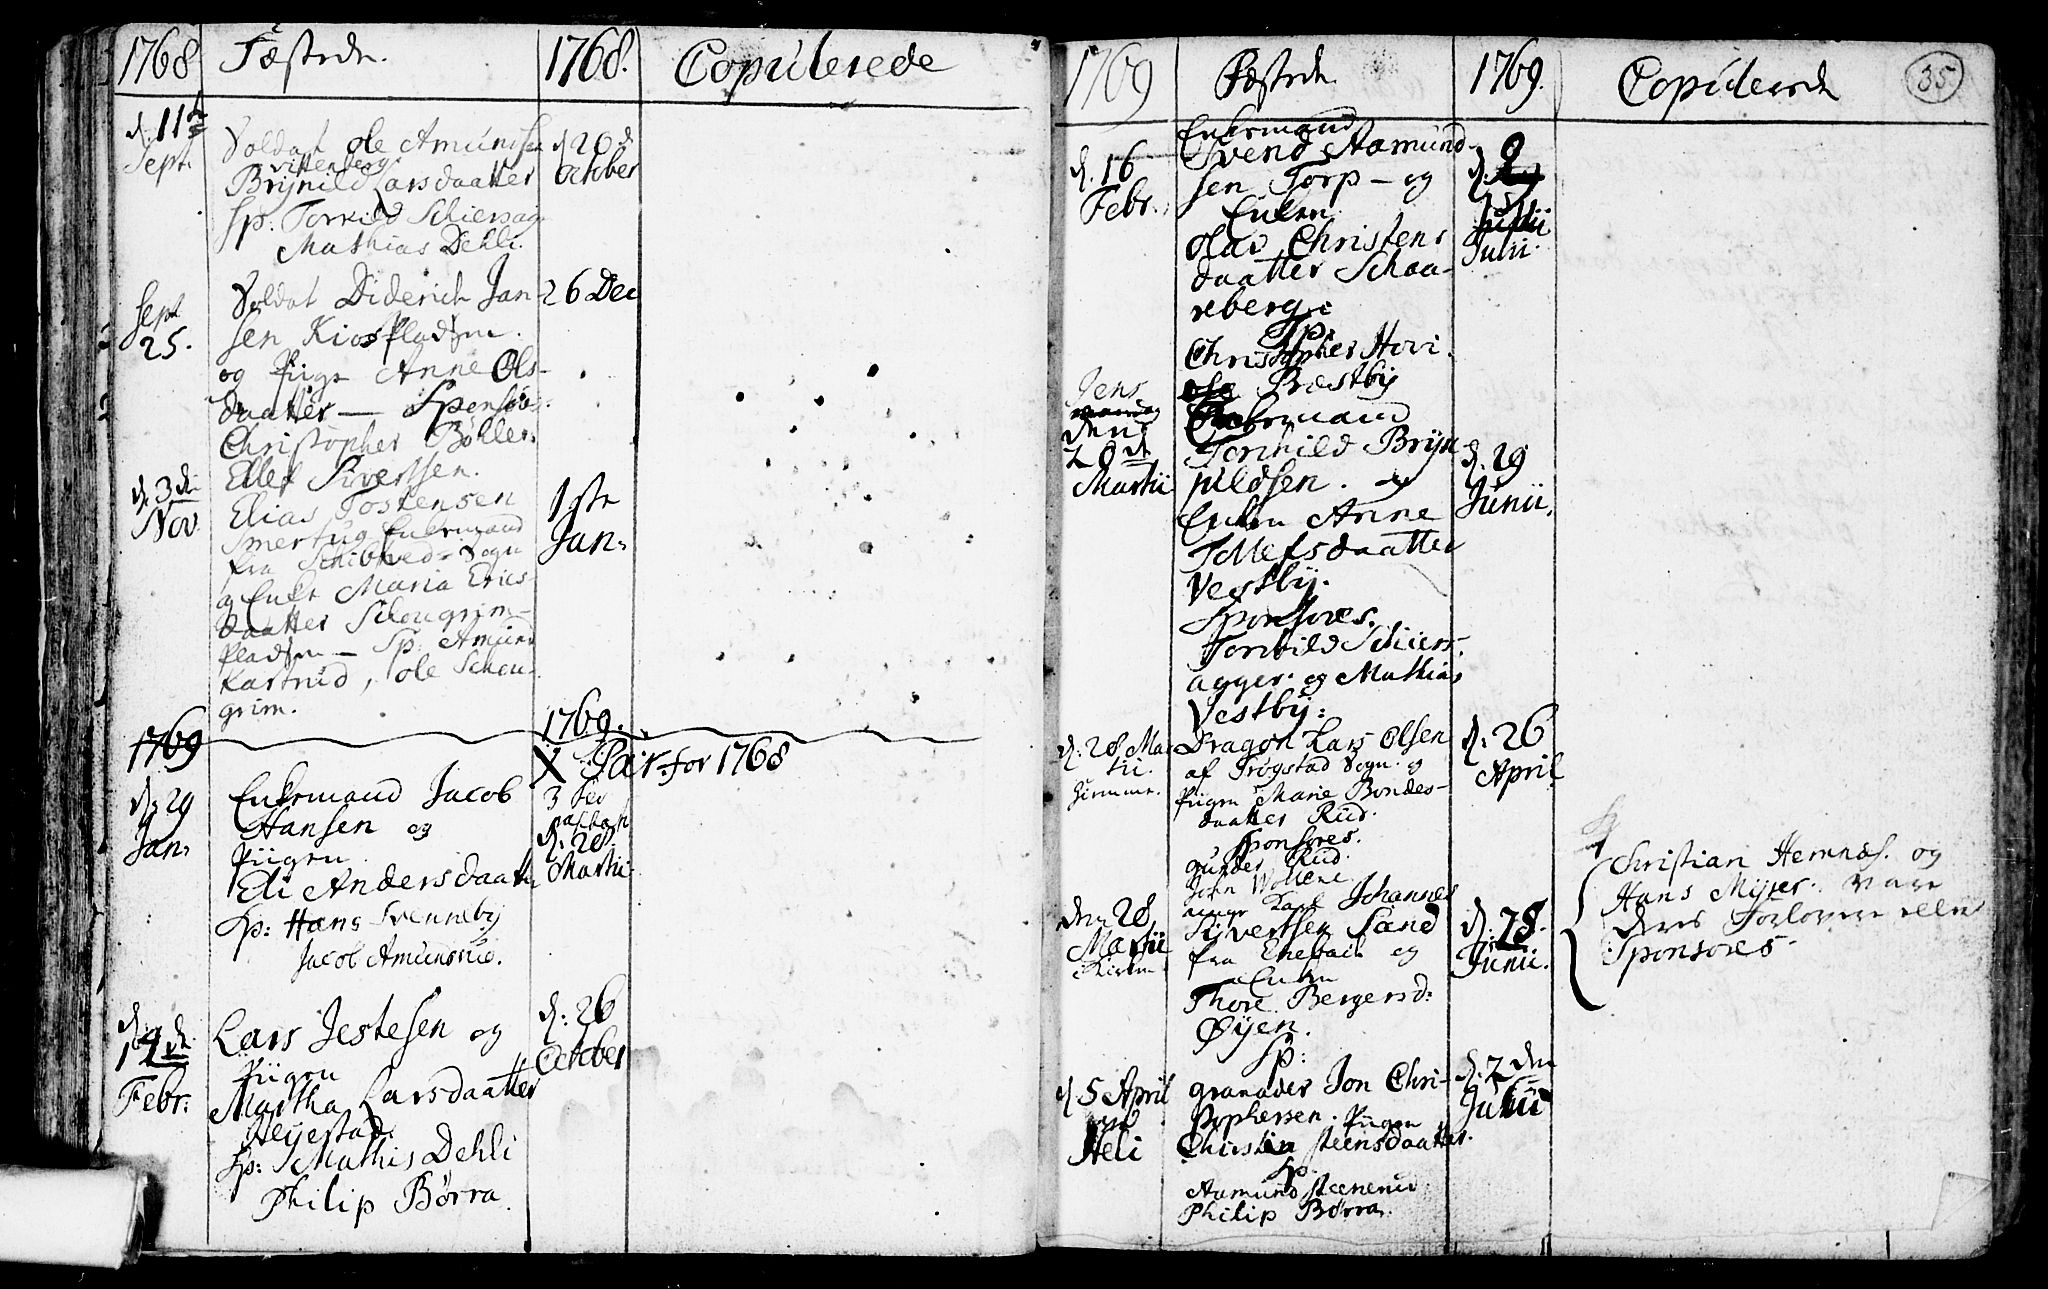 1768 Fæstede. 1768. Copulerede
d. 11te Sept.
Soldat Ole Amundsen
Vittenberg
Brynild Larsdaatter
Sp: Torkild Schiersag
Mathias Dehli.
d 20de October
Sept 25.
Soldat Diderich Jan-
sen Kios Pladsen.
og Pige Anne Ols-
daatter — Sponsor:
Christopher Bøhler.
Ellef Sivertsen.
26 Dec
d. 3de Nov.
Elias Tostensen
Smertug Enkemand
fra Schibtved Sogn
og Enke Maria Erics
daatter Schougrim-
Pladsen — Sp: Amund
Kastrud, Ole Schou-
grim.
1ste Jan:
1769 1769.
X Par for 1768
d. 29 Jan:
Enkemand Jacob
Hansen og
Pigen
Eli Andersdaatter
Sp: Hans Svenneby
Jacob Amundrud.
3
d. 28 Martii
d. 12de Febr:
Lars Jestesen og
Pigen
Martha Larsdaatter
Heyestad
Sp: Mathis Dehli
Philip Børra.
d: 26 October
1769 Fæstede. 1769. Copulerede 35
d. 16 Febr.
Enkemand
Svend Aamund-
sen Torp — og
Enken
Olav Christens
daatter Schaa-
reberg
Sp:
Christopher Hovi.
Bræstby
d. 2
Julii.
den 28de
Martii
Enkemand
Torchild Bryn
hildsen. og
Enken Anne
Tollefsdaatter
Vestby.
Sponsores.
Torkild Schiers-
agger. og Mathias
Vestby:
d. 29
Junii.
d: 28 Mar
tii.
Dragon Lars Olsen
af Trøgstad Sogn. og
Pigen Marie Bondes-
daatter Rud.
Sponsores.
Gunder Rud.
John
d: 26
April
den 28
Martii
Karl Johannes
Sivertsen Sand
fra Enebak og
Enken
Thore Bergersd:
Øyen.
Sp:
d: 28.
Junii.
Christian Hemnæs. og
Hans Myrer. vare
deres Forlovere eller
Sponsores.
d. 5 April
Heli
Granader Jon Chri-
stophersen. Pigen
Christin Steensdaatter.
Sp.
Aamund Steenerud
Philip Børra.
d. 2den
Julii